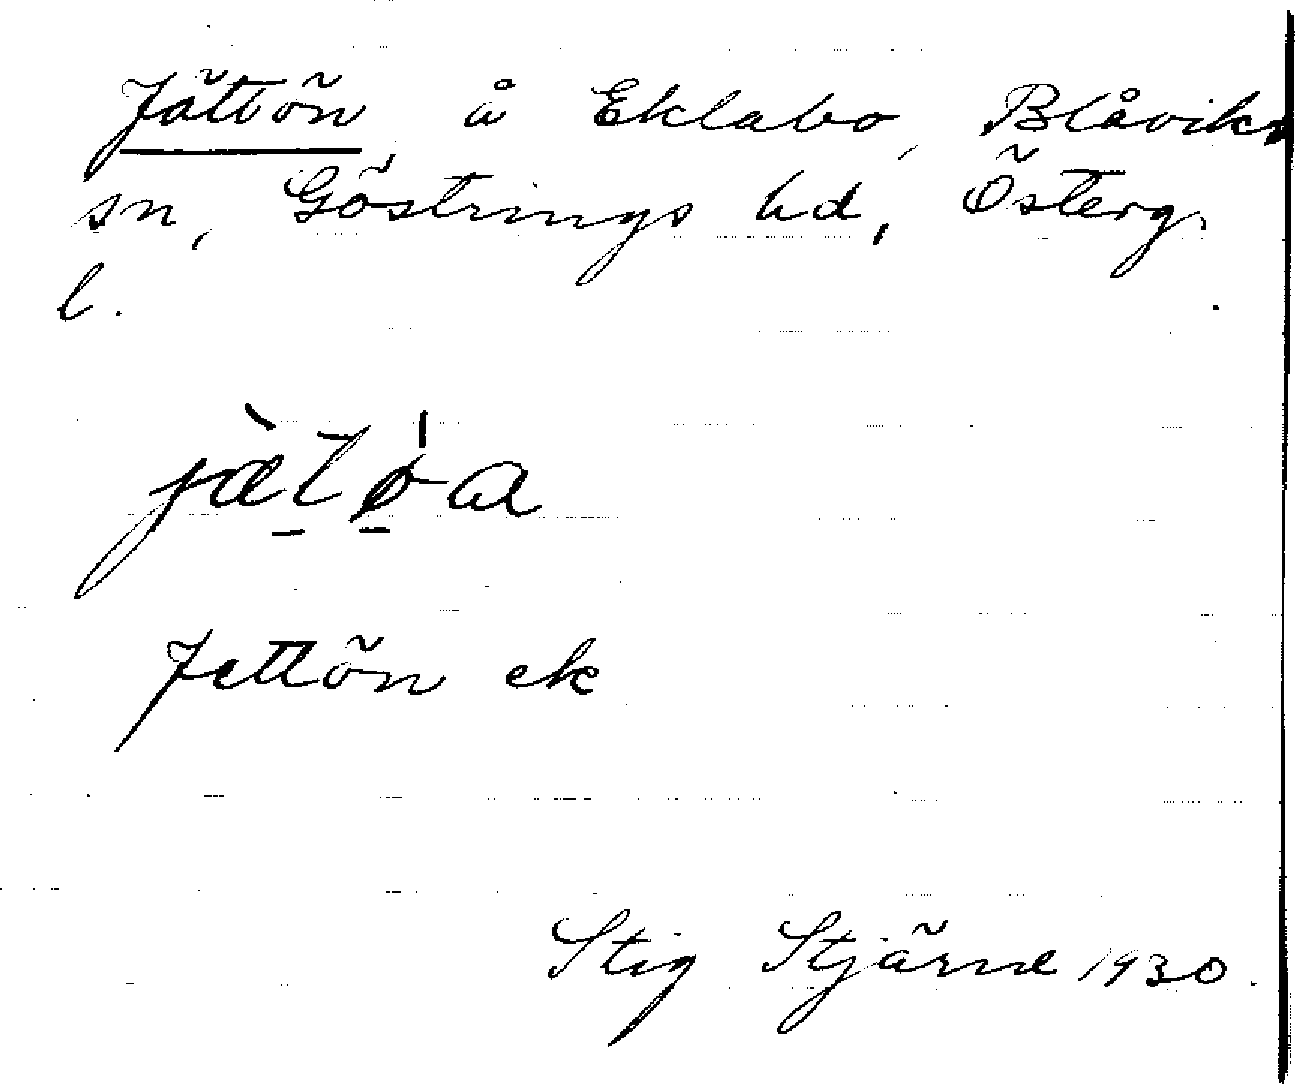 Jättön å Eklabo, Blåviks
sn, Göstrings hd, Österg.
l.
jæ̀tø̍a
Jettön ek
Stig Stjärne 1930.